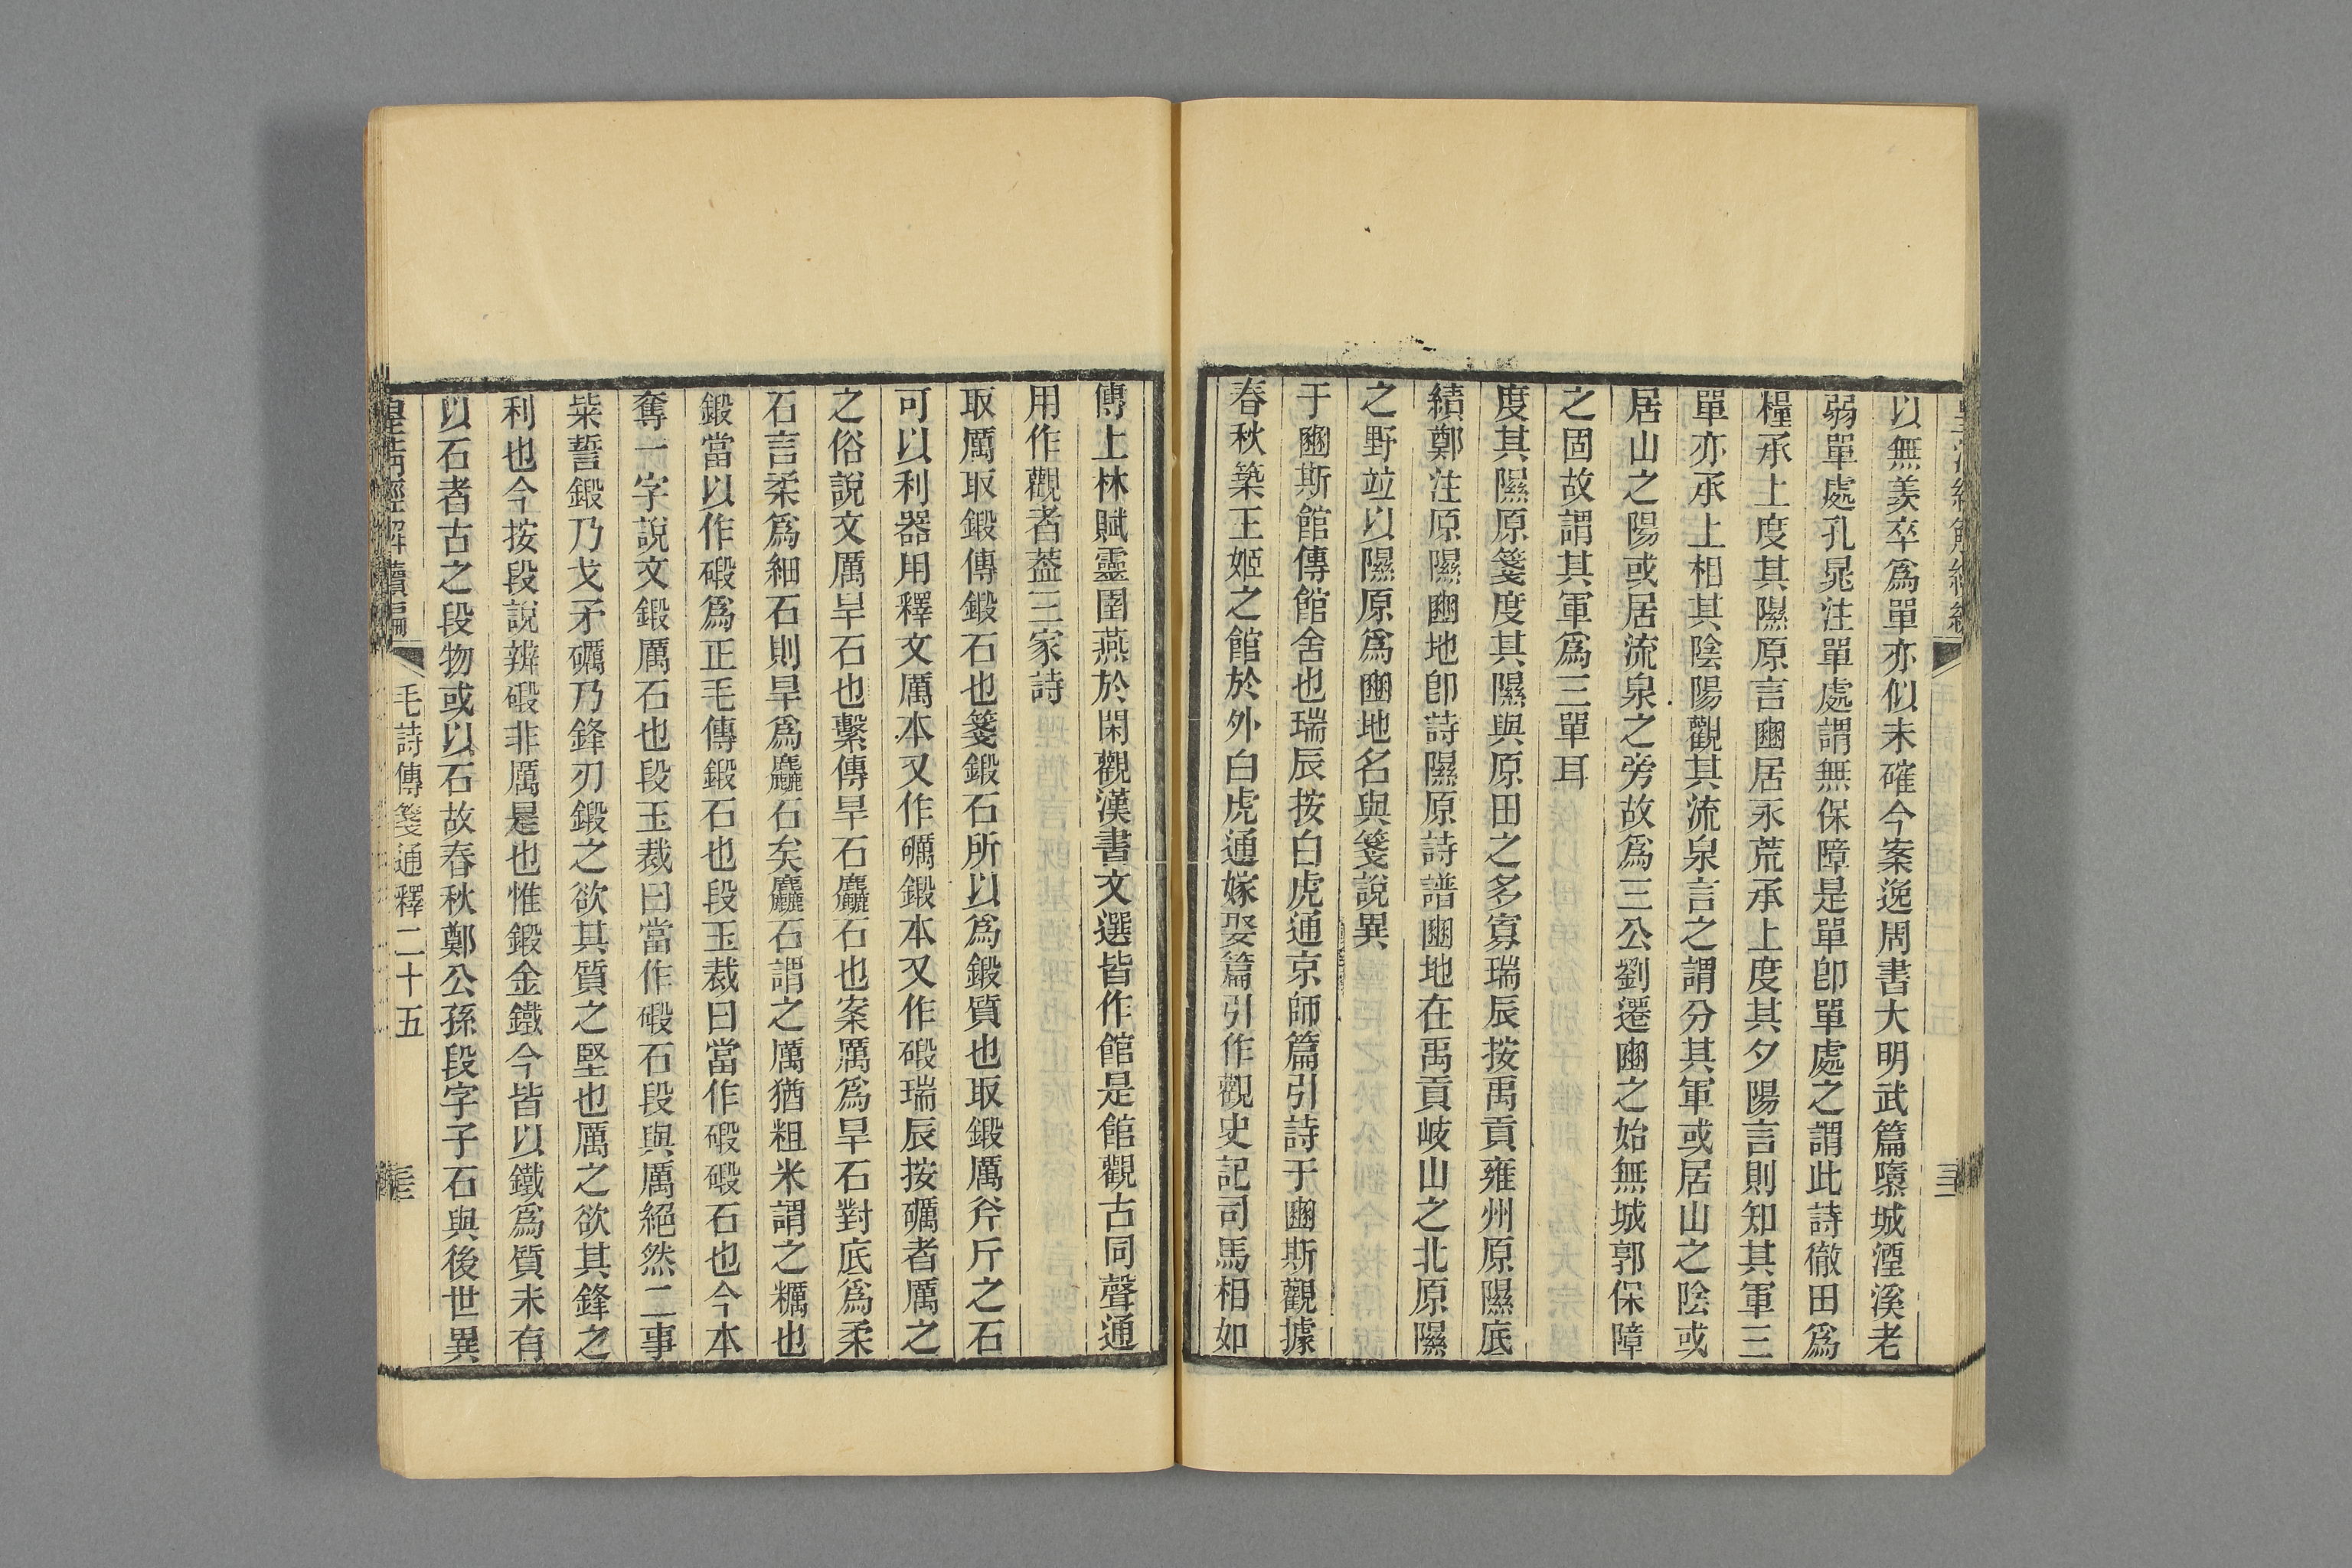 以無羨卒爲單亦似未確今案逸周書大明武篇隳城湮溪老
弱單處孔晁注單處謂無保障是單卽單處之謂此詩徹田爲
糧承上度其隰原言豳居永荒承上度其夕陽言則知其軍三
單亦承上相其陰陽觀其流泉言之謂分其軍或居山之陰或
居山之陽或居流泉之旁故爲三公劉遷豳之始無城郭保障
之固故謂其軍爲三單耳
度其隰原箋度其隰與原田之多寡瑞辰按禹貢雍州原隰底
績鄭注原隰豳地卽詩隰原詩譜豳地在禹貢岐山之北原隰
之野竝以隰原爲豳地名與箋說異
于豳斯館傳館舍也瑞辰按白虎通京師篇引詩于豳斯觀據
春秋築王姬之館於外白虎通嫁娶篇引作觀史記司馬相如
傳上林賦靈圉燕於閑觀漢書文選皆作館是館觀古同聲通
用作觀者葢三家詩
取厲取鍛傳鍛石也箋鍛石所以爲鍛質也取鍛厲斧斤之石
可以利器用釋文厲本又作礪鍛本又作碫瑞辰按礪者厲之
之俗說文厲旱石也繫傳旱石麤石也案厲爲旱石對底爲柔
石言柔爲細石則旱爲麤石矣麤石謂之厲猶粗米謂之糲也
鍛當以作碫爲正毛傳鍛石也段玉裁曰當作碫碫石也今本
奪一字說文鍛厲石也段玉裁曰當作碫石段與厲絕然二事
粊誓鍛乃戈矛礪乃鋒刃鍛之欲其質之堅也厲之欲其鋒之
利也今按段說辨碫非厲是也惟鍛金鐵今皆以鐵爲質未有
以石者古之段物或以石故春秋鄭公孫段字子石與後世異
皇淸經解續編 毛詩傳箋通釋二十五